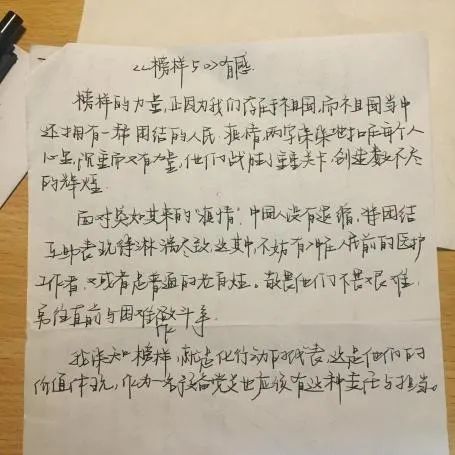 《榜样5》有感
榜样的力量,正因为我们存于祖国,而祖国当中
还拥有一群团结的人民,疫情,两字深深地扣在每个人
心里,沉重而又有力量,他们战胜了重重关卡,创造数不尽
的辉煌
面对突如其来的"疫情",中国人没有退缩,将团结
互助表现得淋漓尽致,这其中,不妨有冲在人民前的医护
工作者,又或者是普通的老百姓。敬畏他们不畏艰难,
勇往直前与困难作斗争
我深知榜样,就是化行动的代表,这是他们的
价值体现,作为一名预备党员也应该有这种责任与担当。